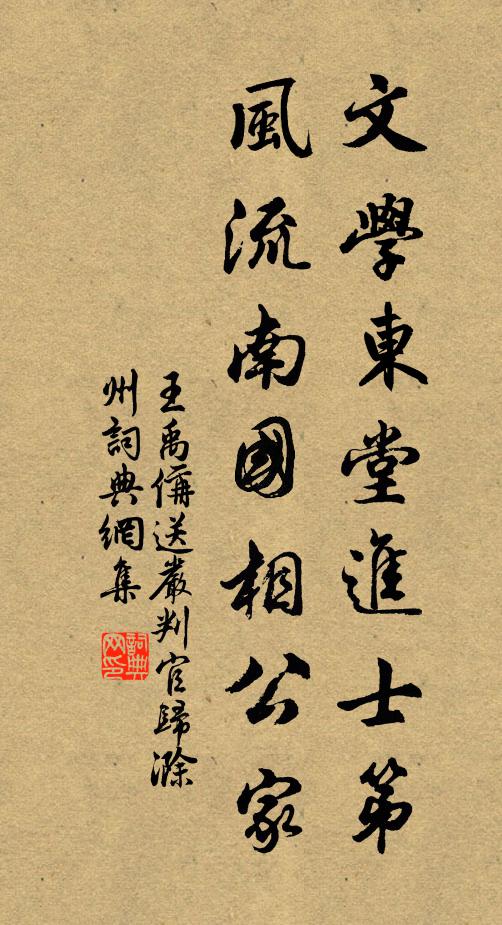 文學東堂進士第
風流南國相公家
王禹偁送嚴判官歸滁
州詞典網集
詞典网印